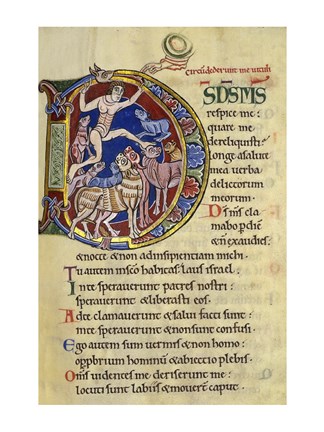 Circūdederunt me uituli
DS DS MS
respice me :
quare me
dereliquisti?
longe a salute
mea uerba
delictorum
meorum .
Ds ms cla
mabo p diē
& n̄ exaudies :
& nocte & non ad insipientiam michi .
Tu autem in sc̄o habitas : laus israel .
In te sperauerunt patres nostri :
sperauerunt & liberasti eos .
Ad te clamauerunt & salui facti sunt :
in te sperauerunt & non sunt confusi .
Ego autem sum uermis & non homo :
opprobrium hominū & abiectio plebis .
Om̄s uidentes me deriserunt me :
locuti sunt labiis & mouerunt caput .